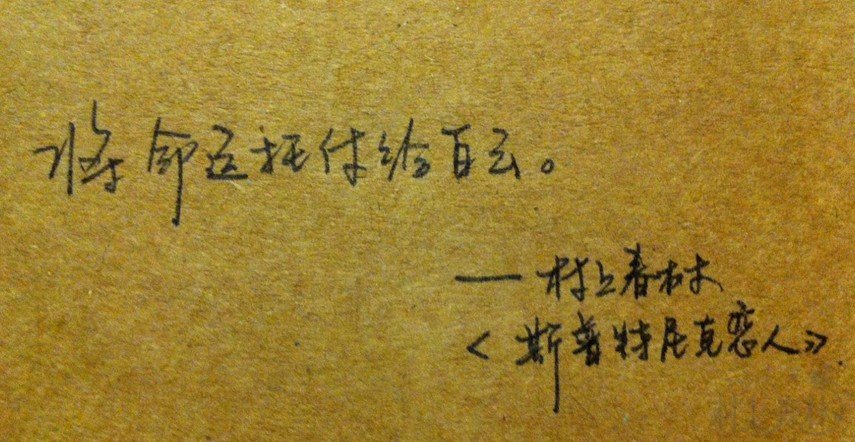 将命运托付给白云。
——村上春树
<斯普特尼克恋人>>